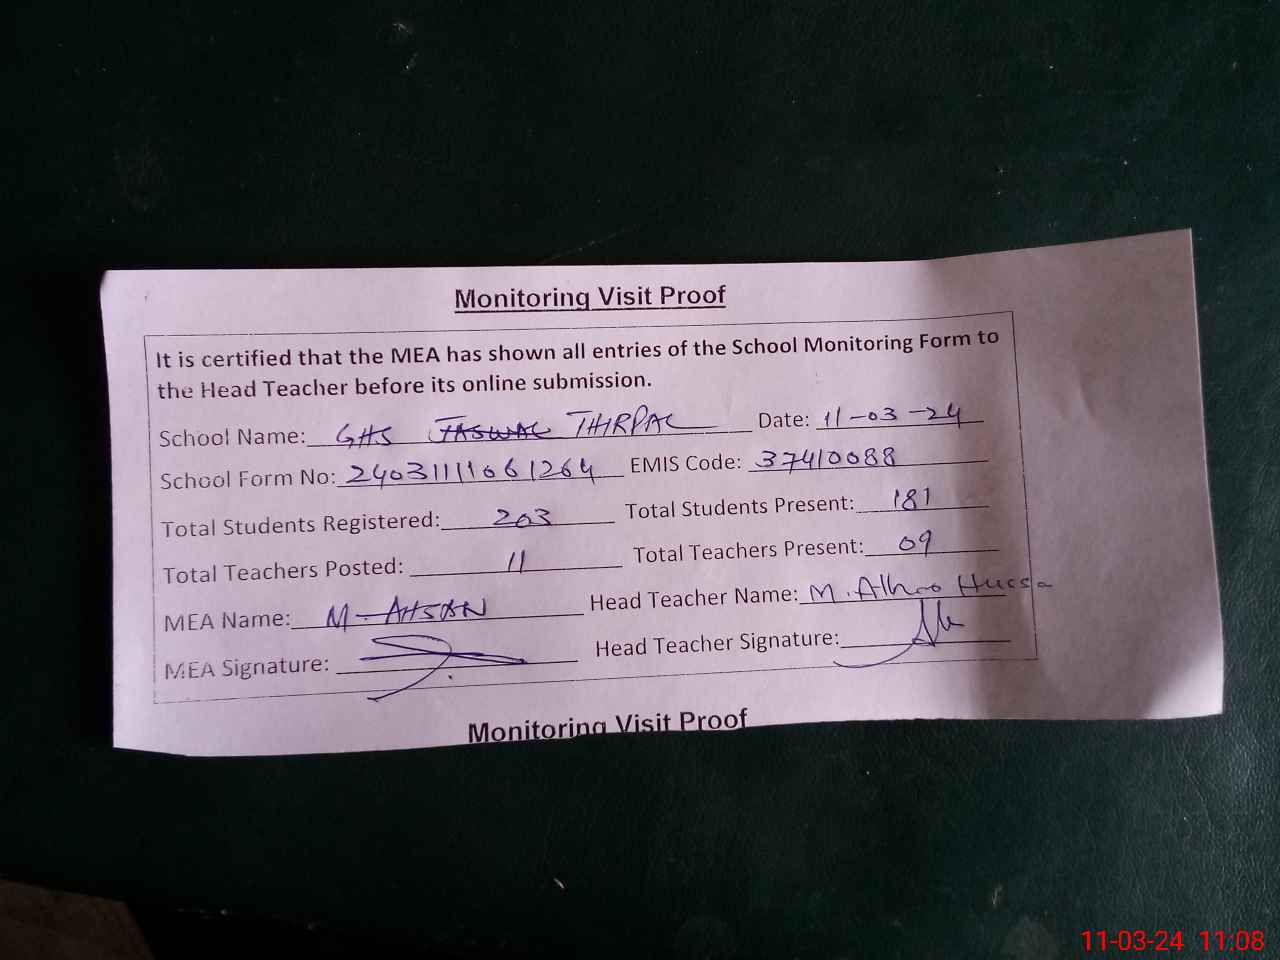 Monitoring Visit Proof
It is certified that the MEA has shown all entries of the School Monitoring Form to
the Head Teacher before its online submission.
School Name: GHS JASWAL THIRPAL Date: 11-03-24
School Form No: 24031111061264 EMIS Code: 37410088
Total Students Registered: 203 Total Students Present: 181
Total Teachers Posted: 11 Total Teachers Present: 09
MEA Name: M-AHSAN Head Teacher Name: M.
MEA Signature: Head Teacher Signature:
Monitoring Visit Proof
11-03-24 11:08